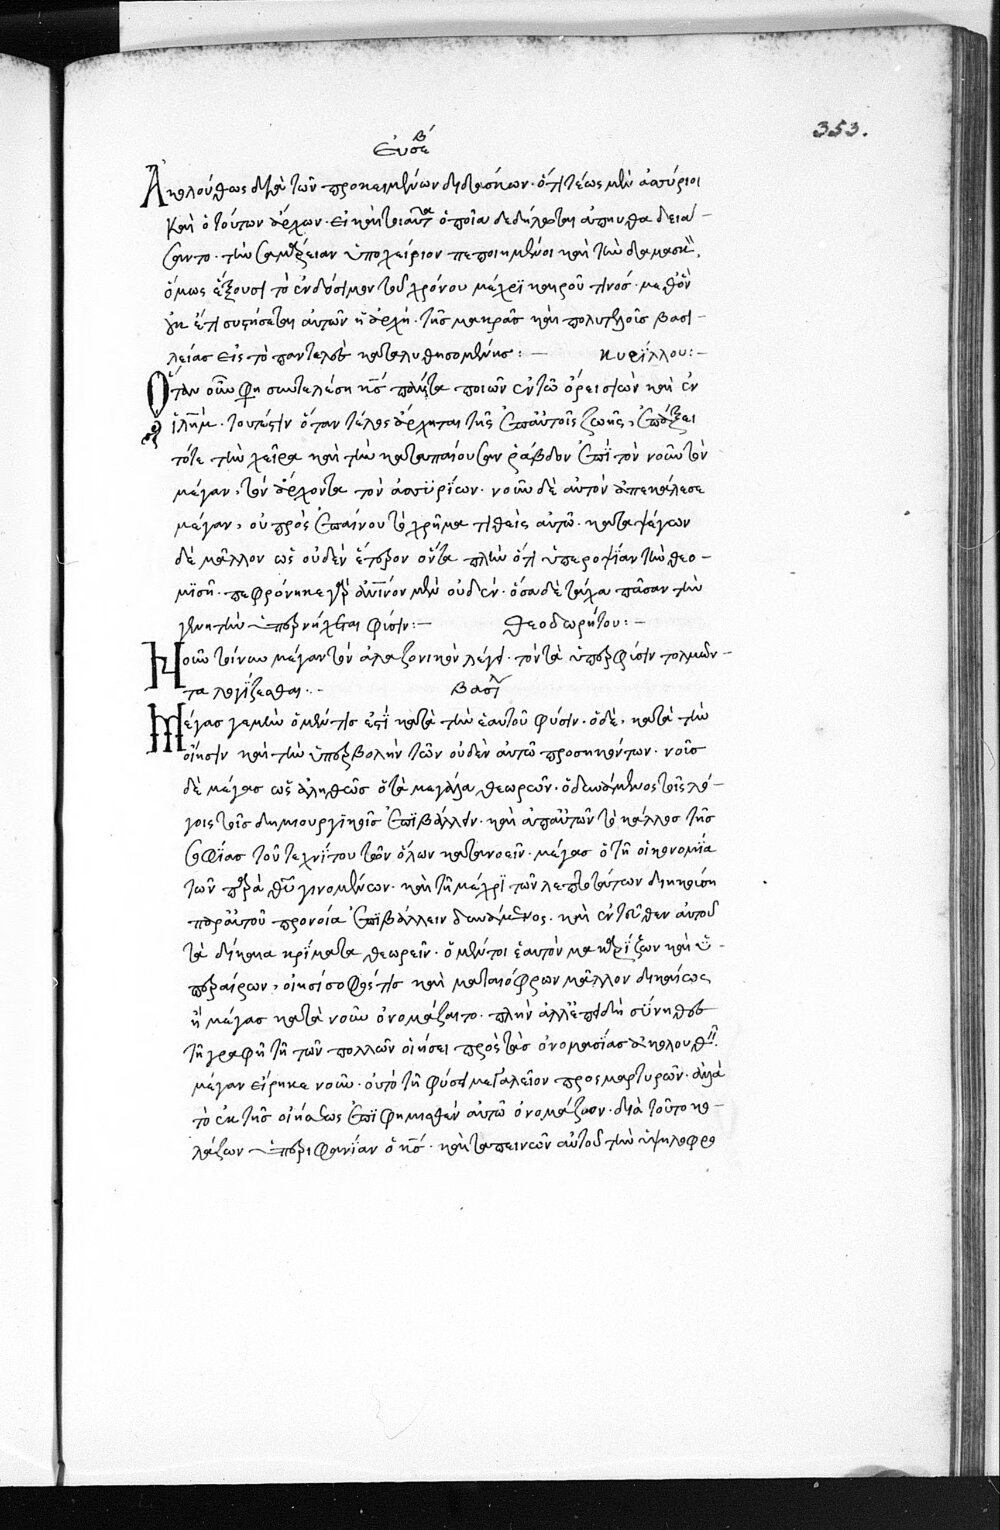 353.
Εὐσεβ
Ἀκολούθως διὰ τῶν προκειμένων διδασκων. ὅτι τέως μὲν ἀσσύριοι
καὶ ὁ τούτων ἄρχων. εἰ καὶ τοιαῦτα ὁποῖα δεδήλωται ἀπηυθαδειά-
σαντο. τὴν σαμάρειαν ὑποχείριον πεποιημένοι καὶ τὴν δαμασκ
ὅμως ἕξουσι τὸ ἐνδόσιμον τοῦ χρόνου μέχρι καιροῦ τινός. μεθ' ὃν
οὐκ ἔτι συστήσεται αὐτῶν ἡ ἀρχή. τῆς μακρᾶς καὶ πολυτελοῦς βασι-
λείας εἰς τὸ παντελὲς καταλυθησομένης: — κυρίλλου: —
Ὅταν οὖν φη συντελέση κς πάντα ποιῶν ἐν τῶ ὄρει σιὼν καὶ ἐν
ἱλημ. τουτέστιν ὅταν τέλος ἄρχηται τῆς ἐπ' αὐτοῖς ζωῆς, ἐπάξει
τότε τὴν χεῖρα καὶ τὴν καταπαίουσαν ῥάβδον ἐπὶ τὸν νοῦν τὸν
μέγαν, τὸν ἄρχοντα τὸν ἀσσυρίων. νοῦν δὲ αὐτὸν ἀπεκάλεσε
μέγαν, οὐ πρὸς ἐπαίνου τὸ χρῆμα τιθεὶς αὐτῶ. καταψέγων
δὲ μᾶλλον ὡς οὐδὲν ἕτερον ὄντα πλὴν ὅτι ὑπεροψίαν τὴν θεο-
μισῆ. πεφρόνηκε γὰρ ἀνινον μὲν οὐδέν. ὅσα δὲ τάχα πᾶσαν τὴν
γενητὴν ὑπερνήχεται φύσιν: — θεοδωρήτου: —
Νοῦν τοίνυν μέγαν τὸν ἀλαζονικὸν λέγει. τὸν τὰ ὑπὲρ φύσιν τολμῶν-
τα λογίζεσθαι. — βασιλ
Μέγας γε μὴν ὁ μέν τις ἐστὶ κατὰ τὴν ἑαυτοῦ φύσιν. ὁ δὲ, κατὰ τὴν
οἴησιν καὶ τὴν ὑπερβολὴν τῶν οὐδὲν αὐτῶ προσηκόντων. νοῦς
δὲ μέγας ὡς ἀληθῶς ὁ τὰ μεγάλα θεωρῶν. ὁ δυνάμενος τοῖς λό-
γοις τοῖς δημιουργικοῖς ἐπιβάλλειν. καὶ ἀπ' αὐτῶν τὸ κάλλος τῆς
σοφίας τοῦ τεχνίτου τῶν ὅλων κατανοεῖν. μέγας ὁ τῆ οἰκονομία
τῶν παρὰ θυ γινομένων. καὶ τῆ μέχρι τῶν λεπτοτάτων διηκούση
παρ' αὐτοῦ προνοία ἐπιβάλλειν δυνάμενος. καὶ ἐντεῦθεν αὐτοῦ
τὰ δίκαια κρίματα θεωρεῖν. ὁ μέντοι ἑαυτὸν μακαρίζων καὶ ὑ-
περαίρων, οἰησίσοφός τις καὶ ματαιόφρων μᾶλλον δικαίως
ἢ μέγας κατὰ νοῦν ὀνομάζοιτο. πλὴν ἀλλ' ἐπειδὴ σύνηθες
τῆ γραφῆ τῆ τῶν πολλῶν οἰήσει πρὸς τὰς ὀνομασίας ἀκολουθ
μέγαν εἴρηκε νοῦν. οὐ τὸ τῆ φύσει μεγαλεῖον προσμαρτυρῶν. ἀλλὰ
τὸ ἐκ τῆς οἰήσεως ἐπιφημισθὲν αὐτῶ ὀνομάζων. διὰ τοῦτο κο-
λάζων ὑπεριφανίαν ὁ κς. καὶ ταπεινῶν αὐτοῦ τὴν ὑψηλοφρο